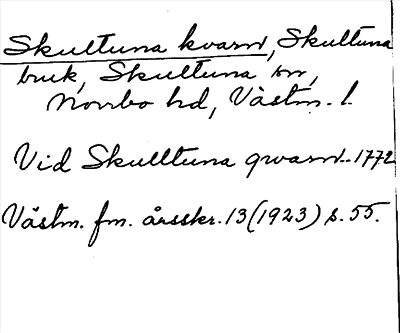 Skultuna kvarn, Skultuna
bruk, Skultuna sn,
Norrbo hd, Västm. l.
Vid Skulltuna qvarn. 1772
Västm. fm. årsskr. 13 (1923) s. 55.